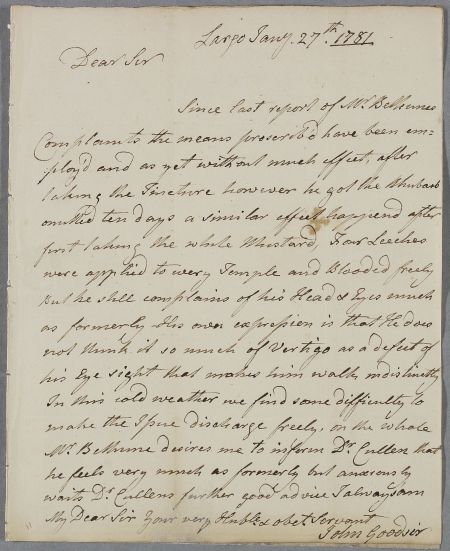 Largo Jany. 27th. 1781
Dear Sir
Since last report of Mr. Bethunes
Complaints the means prescrib'd have been em-
ploy'd and as yet without much effect, after
taking the Tincture however he got the Rhubarb
omitted ten days a similar effect happend after
first taking the white Mustard, Four Leeches
were applied to every Temple and Blooded freely
But he still complains of his Head & Eyes much
as formerly His own expression is that He does
not think it so much of Vertigo as a defect of
his Eye sight that makes him walk indistinctly
In this cold weather we find some difficulty to
make the Issue discharge freely, on the whole
Mr. Bethune desires me to inform Dr. Cullen that
he feels very much as formerly but anxiously
waits Dr. Cullens further good advice I always am
My Dear Sir Your very Huble. & obet. Servant
John Goodsir